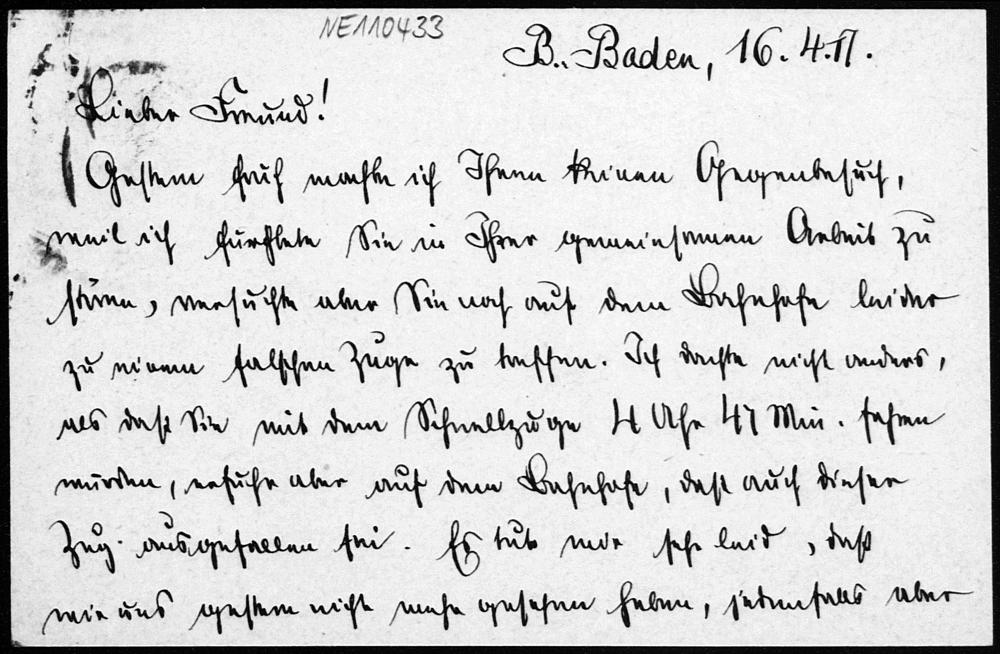 NE110433
B.-Baden, 16.4.17.
Lieber Freund!
Gestern früh machte ich Ihnen keinen Gegenbesuch,
weil ich fürchtete Sie in Ihrer gemeinsamen Arbeit zu
stören, versuchte aber Sie noch auf dem Bahnhofe leider
zu einem falschen Zuge zu treffen. Ich dachte nicht anders,
als daß Sie mit dem Schnellzuge 4 Uhr 47 Min. fahren
würden, erfuhr aber auf dem Bahnhofe, daß auch dieser
Zug ausgefallen sei. Es tut mir sehr leid, daß
wir uns gestern nicht mehr gesehen haben, jedenfalls aber